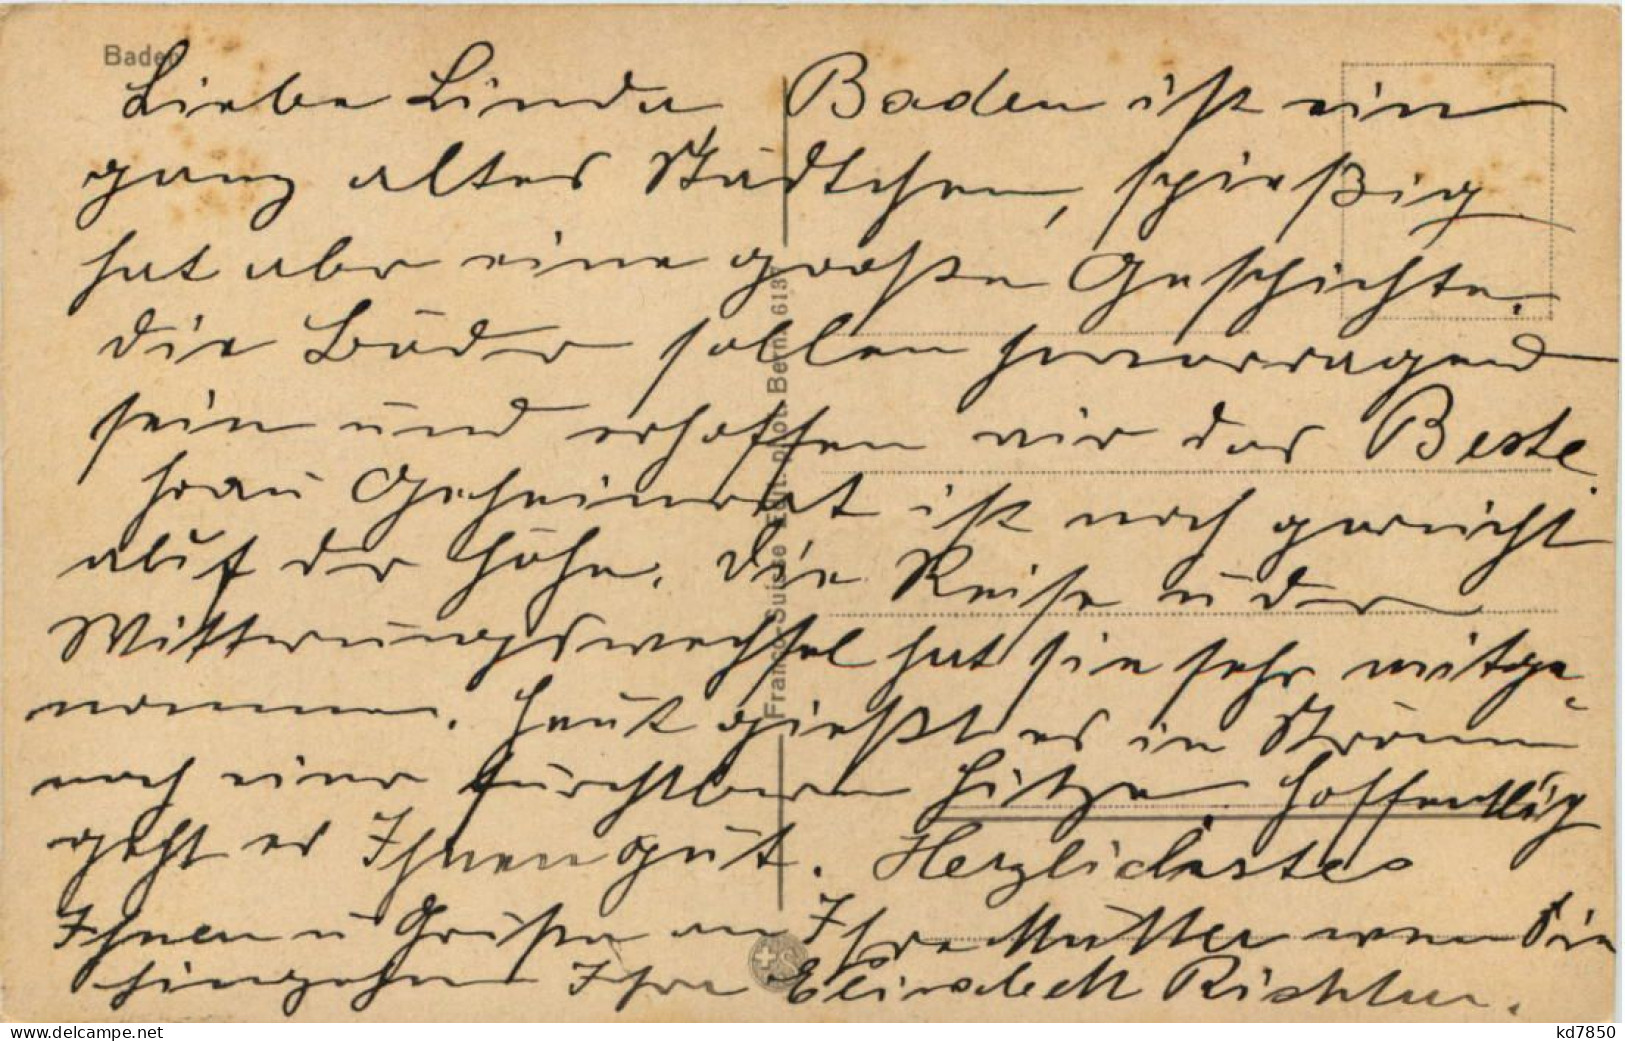 Baden
Liebe Linda Baden ist ein
ganz altes Städtchen, spießig
hat aber eine große Geschichte.
Die Bäder sollen hervorragend
sein und erhoffen wir das Beste.
Frau Geheimrat ist noch gar nicht
auf der Höhe. Die Reise u der
Witterungswechsel hat sie sehr mitge-
nommen. Heut gießt es in Strömen
nach einer furchtbaren Hitze. Hoffentlich
geht es Ihnen gut. Herzlichstes
Ihnen u Grüße an Ihre Mutter wenn Sie
hingehen Ihre Elisabeth Richter.
Franco-Suisse Edit. Phot. Berne 613
www.delcampe.net
kd7850